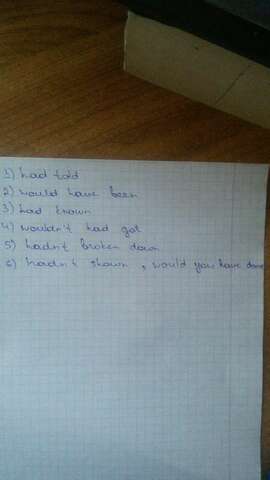 1) had told
2) would have been
3) had known
4) wouldn't had got
5) hadn't broken down
6) hadn't shown, would you have done